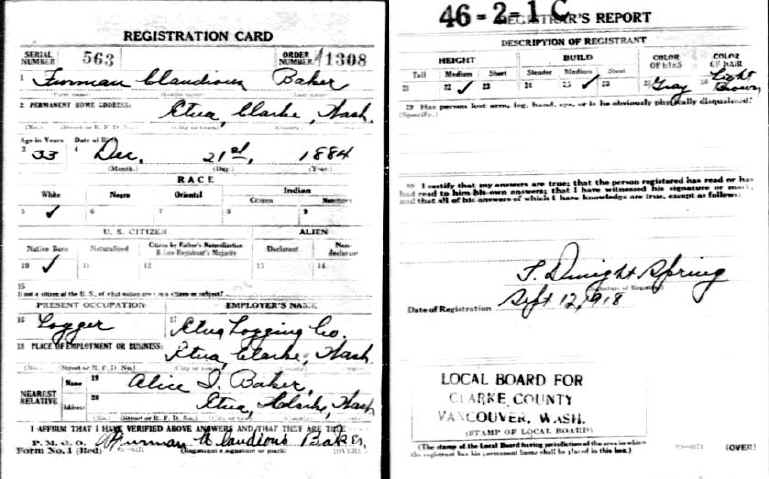 REGISTRATION CARD
SERIAL NUMBER 563 ORDER NUMBER 1308
1 Furman Claudious Baker
2 PERMANENT HOME ADDRESS:
Etna, Clarke, Wash.
Age in Years Date of Birth
3 33 4 Dec. 21st, 1884
(Month.) (Day.) (Year.)
RACE
White Negro Oriental Indian
Citizen
5 ✓ 6 7 8 9
U. S. CITIZEN ALIEN
Native Born Naturalized Citizen by Father's Naturalization Before Registrant's Majority Declarant Non-declarant
10 ✓ 11 12 13 14
15
If not a citizen of the U. S., of what nation are you a citizen or subject?
PRESENT OCCUPATION EMPLOYER'S NAME
16 Logger 17 Etna Logging Co.
18 PLACE OF EMPLOYMENT OR BUSINESS:
Etna, Clarke, Wash.
(No.) (Street or R. F. D. No.) (City or town) (County) (State)
NEAREST RELATIVE Name 19 Alice I. Baker,
Address 20 Etna, Clarke, Wash
I AFFIRM THAT I HAVE VERIFIED ABOVE ANSWERS AND THAT THEY ARE TRUE
P. M. G. O.
Form No. 1 (Red) Furman Claudious Baker
(Registrant's signature or mark) (OVER)
46-2-1 C
REGISTRAR'S REPORT
DESCRIPTION OF REGISTRANT
HEIGHT BUILD COLOR OF EYES COLOR OF HAIR
Tall Medium Short Slender Medium Stout
21 22 ✓ 23 24 25 ✓ 26 27 Gray 28 Light Brown
29 Has person lost arm, leg, hand, eye, or is he obviously physically disqualified?
(Specify.)
30 I certify that my answers are true; that the person registered has read or has
had read to him his own answers; that I have witnessed his signature or mark,
and that all of his answers of which I have knowledge are true, except as follows:
F. Dwight Spring
Date of Registration Sept 12, 1918
LOCAL BOARD FOR
CLARKE COUNTY
VANCOUVER, WASH.
(STAMP OF LOCAL BOARD)
(The stamp of the Local Board having jurisdiction of the area in which
the registrant has his permanent home shall be placed in this box.)
(OVER)